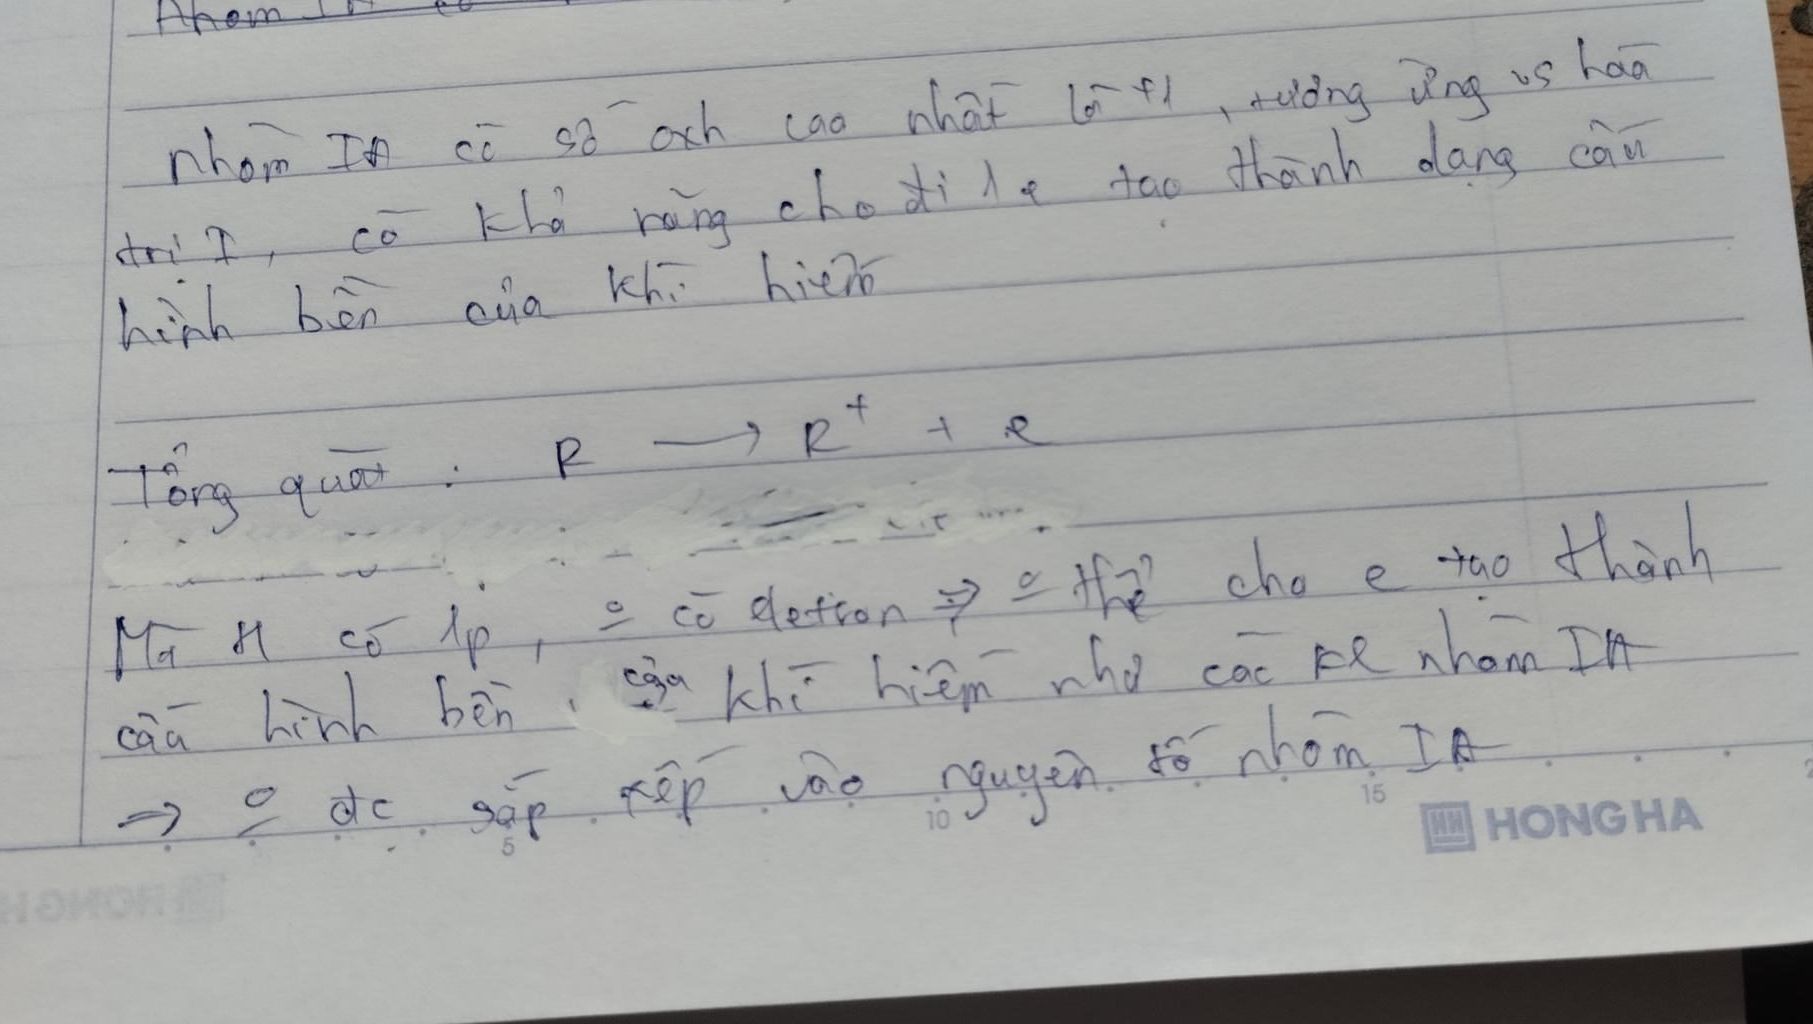 Nhóm IA có
nhóm IA có số oxh cao nhất là +1, tương ứng vs hoá
trị I, có khả năng cho đi 1e tạo thành dạng cấu
hình bền của khí hiếm
Tổng quát : R → R⁺ + e
Mà H có 1p, o có electron => o thể cho e tạo thành
cấu hình bền của khí hiếm như các KL nhóm IA
=> o đc sắp xếp vào nguyên tố nhóm IA
5 10 15
HONG HA